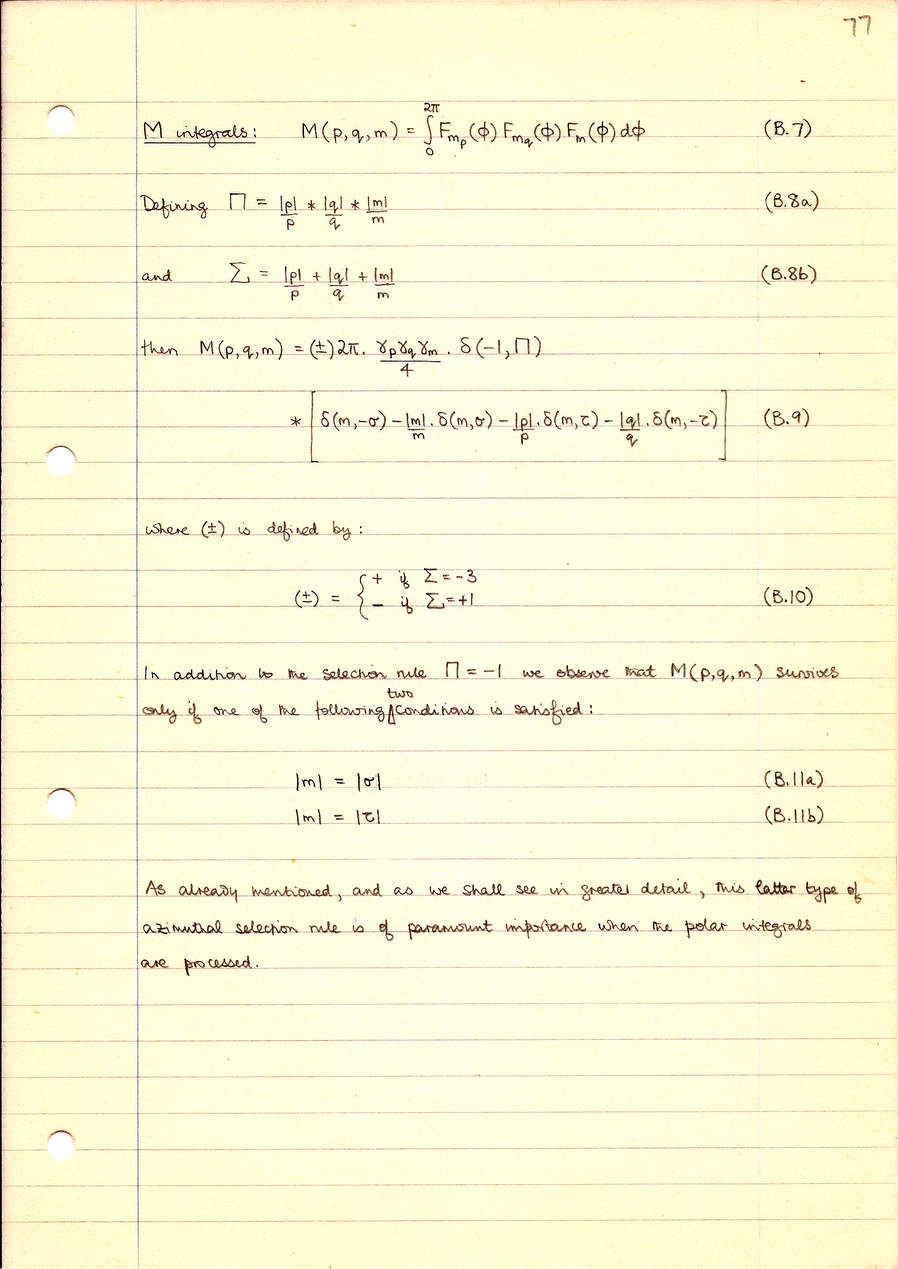 77
M integrals: M(p,q,m) = ∫₀^2π F_mp(ϕ) F_mq(ϕ) F_m(ϕ) dϕ (B.7)
Defining Π = |p|/p * |q|/q * |m|/m (B.8a)
and Σ = |p|/p + |q|/q + |m|/m (B.8b)
then M(p,q,m) = (±)2π. γ_pγ_qγ_m/4 . δ(-1,Π)
* [δ(m,-σ) - |m|/m . δ(m,σ) - |p|/p . δ(m,τ) - |q|/q . δ(m,-τ)] (B.9)
where (±) is defined by:
(±) = { + if Σ = -3
- if Σ = +1 (B.10)
In addition to the selection rule Π = -1 we observe that M(p,q,m) survives
only if one of the following two conditions is satisfied:
|m| = |σ| (B.11a)
|m| = |τ| (B.11b)
As already mentioned, and as we shall see in greater detail, this latter type of
azimuthal selection rule is of paramount importance when the polar integrals
are processed.